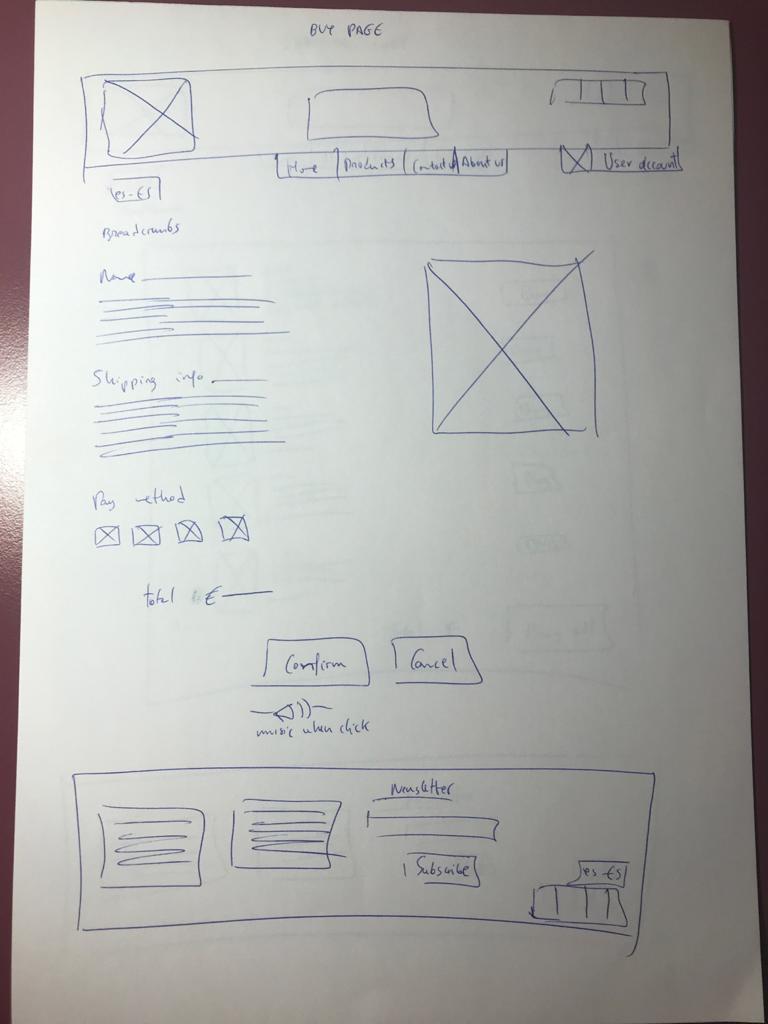 BUY PAGE
Home Products Contact About us User account
es-ES
Breadcrumbs
Name
Shipping info.
Pay method
total €
Confirm Cancel
music when click
Newsletter
Subscribe
es-ES